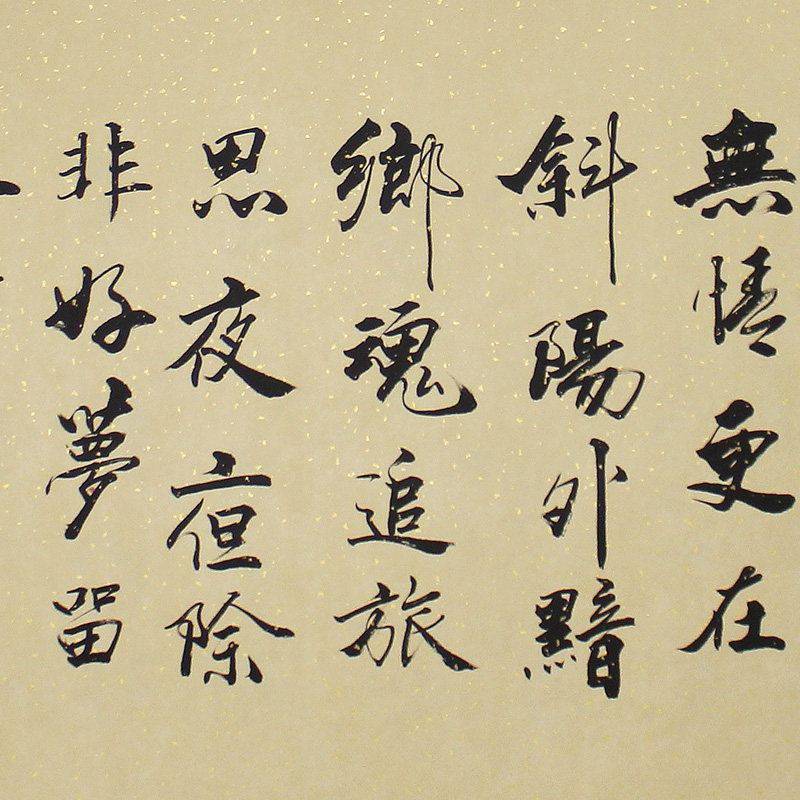 無情更在
斜陽外黯
鄉魂追旅
思夜亱除
非好夢留